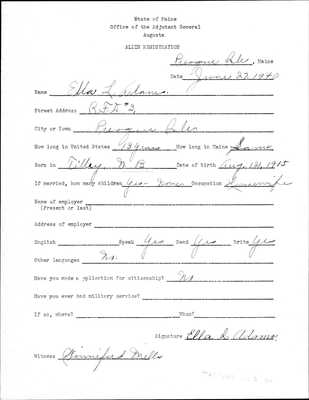 State of Maine
Office of the Adjutant General
Augusta
ALIEN REGISTRATION
Presque Isle, Maine
Date June 27, 1940
Name Ella L. Adams.
Street Address R.F.D. #2
City or Town Presque Isle.
How long in United States How long in Maine Same
Born in Tilley, N B Date of birth Aug. 1915
If married, how many children Yes - None Occupation Housewife
Name of employer
(Present or last)
Address of employer
English Speak Yes Read Yes Write Yes
Other languages No.
Have you made application for citizenship? No
Have you ever had military service?
If so, where? When?
Signature Ella L. Adams
Witness Winnifred Mills